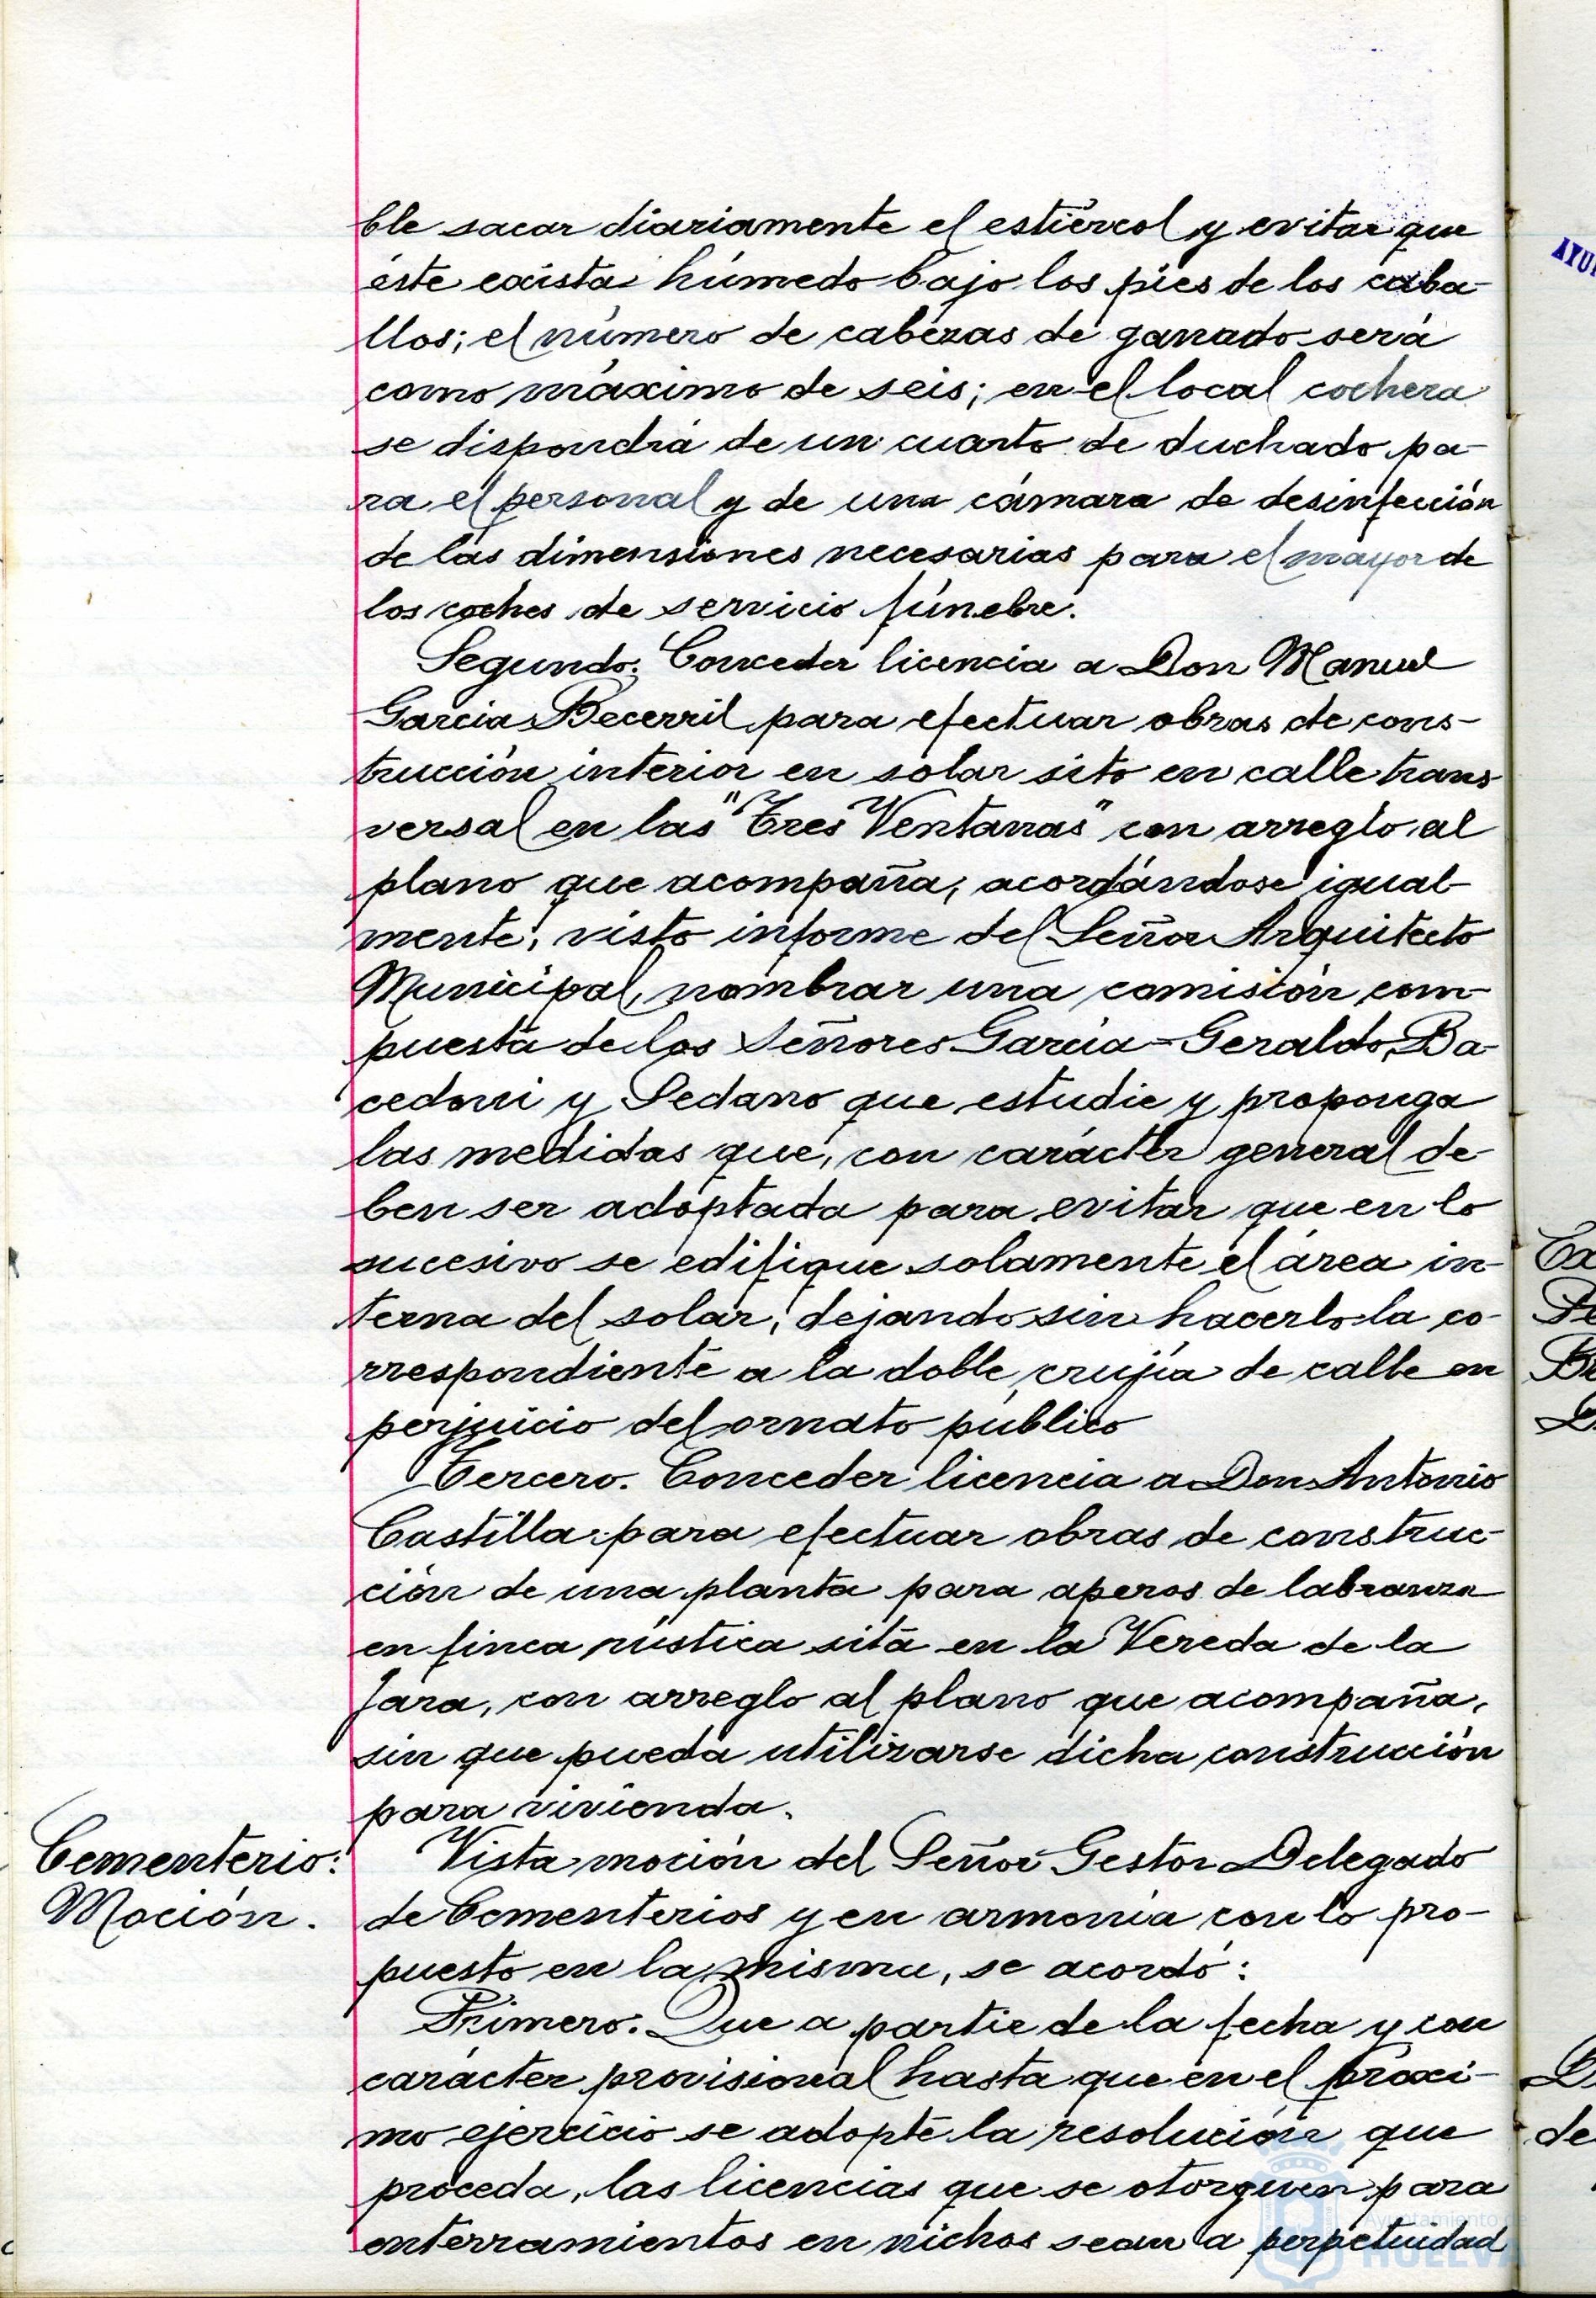 ble sacar diariamente el estiércol y evitar que
éste exista húmedo bajo los pies de los caba-
llos; el número de cabezas de ganado será
como máximo de seis; en el local cochera
se dispondrá de un cuarto de duchado pa-
ra el personal y de una cámara de desinfección
de las dimensiones necesarias para el mayor de
los coches de servicio fúnebre.
Segundo. Conceder licencia a Don Manuel
Garcia Becerril para efectuar obras de cons-
trucción interior en solar sito en calle trans
versal en las "Tres Ventanas" con arreglo al
plano que acompaña, acordándose igual-
mente, visto informe del Señor Arquitecto
Municipal, nombrar una comisión com-
puesta de los Señores García-Geraldo, Ba-
cedoni y Sedano que estudie y proponga
las medidas que, con carácter general de-
ben ser adoptada para evitar que en lo
sucesivo se edifique solamente el área in-
terna del solar, dejando sin hacerlo la co-
rrespondiente a la doble crujía de calle en
perjuicio del ornato público
Tercero. Conceder licencia a Don Antonio
Castilla para efectuar obras de construc-
ción de una planta para aperos de labranza
en finca rústica sita en la Vereda de la
Jara, con arreglo al plano que acompaña,
sin que pueda utilizarse dicha construcción
para vivienda.
Cementerio:
Moción.
Vista moción del Señor Gestor Delegado
de Cementerios y en armonía con lo pro-
puesto en la misma, se acordó:
Primero. Que a partir de la fecha y con
carácter provisional hasta que en el próxi-
mo ejercicio se adopte la resolución que
proceda, las licencias que se otorguen para
enterramientos en nichos sean a perpetuidad
Ayuntamiento de
HUELVA